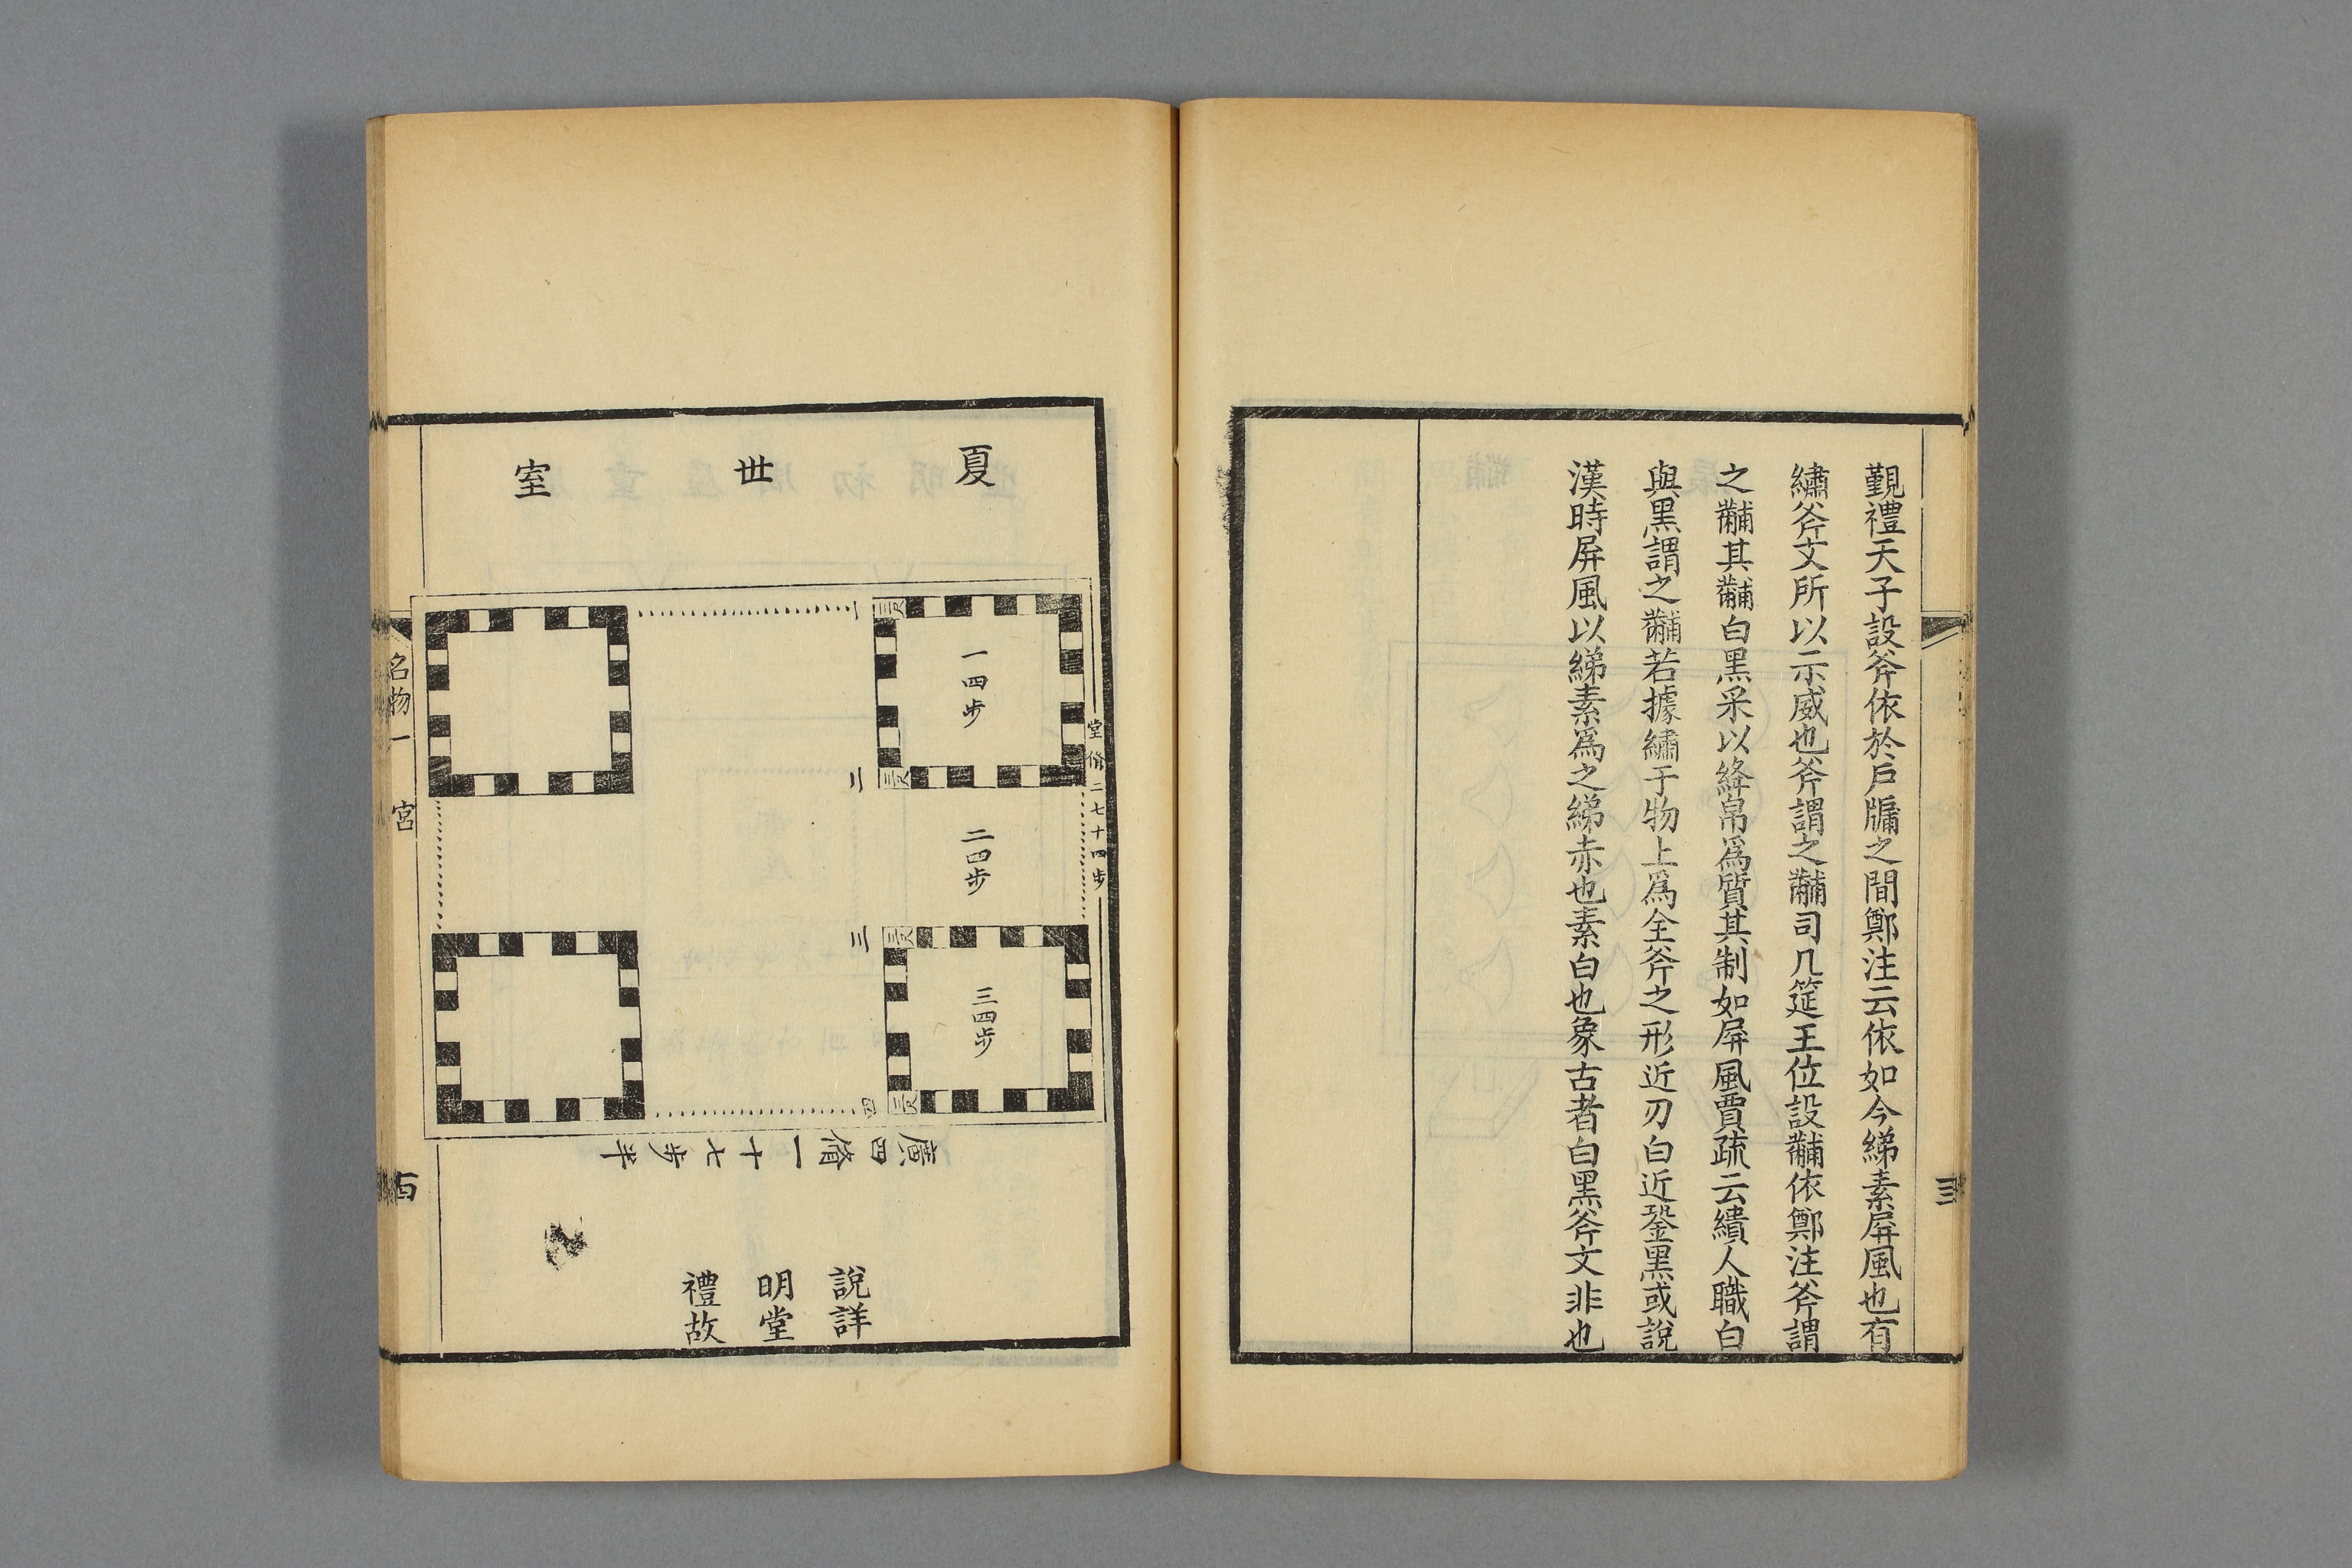 覲禮天子設斧依於戶牖之間鄭注云依如今綈素屏風也有
繡斧文所以示威也斧謂之黼司几筵王位設黼依鄭注斧謂
之黼其黼白黑采以絳帛爲質其制如屏風賈疏云繢人職白
與黑謂之黼若據繡于物上爲全斧之形近刃白近銎黑或說
漢時屏風以綈素爲之綈赤也素白也象古者白黑斧文非也
夏世室
一四步
二四步
三四步
堂脩二七十四步
一
二
三
四
三尺
三尺
三尺
三尺
廣四脩一十七步半
說詳
明堂
禮故
名物一 宮